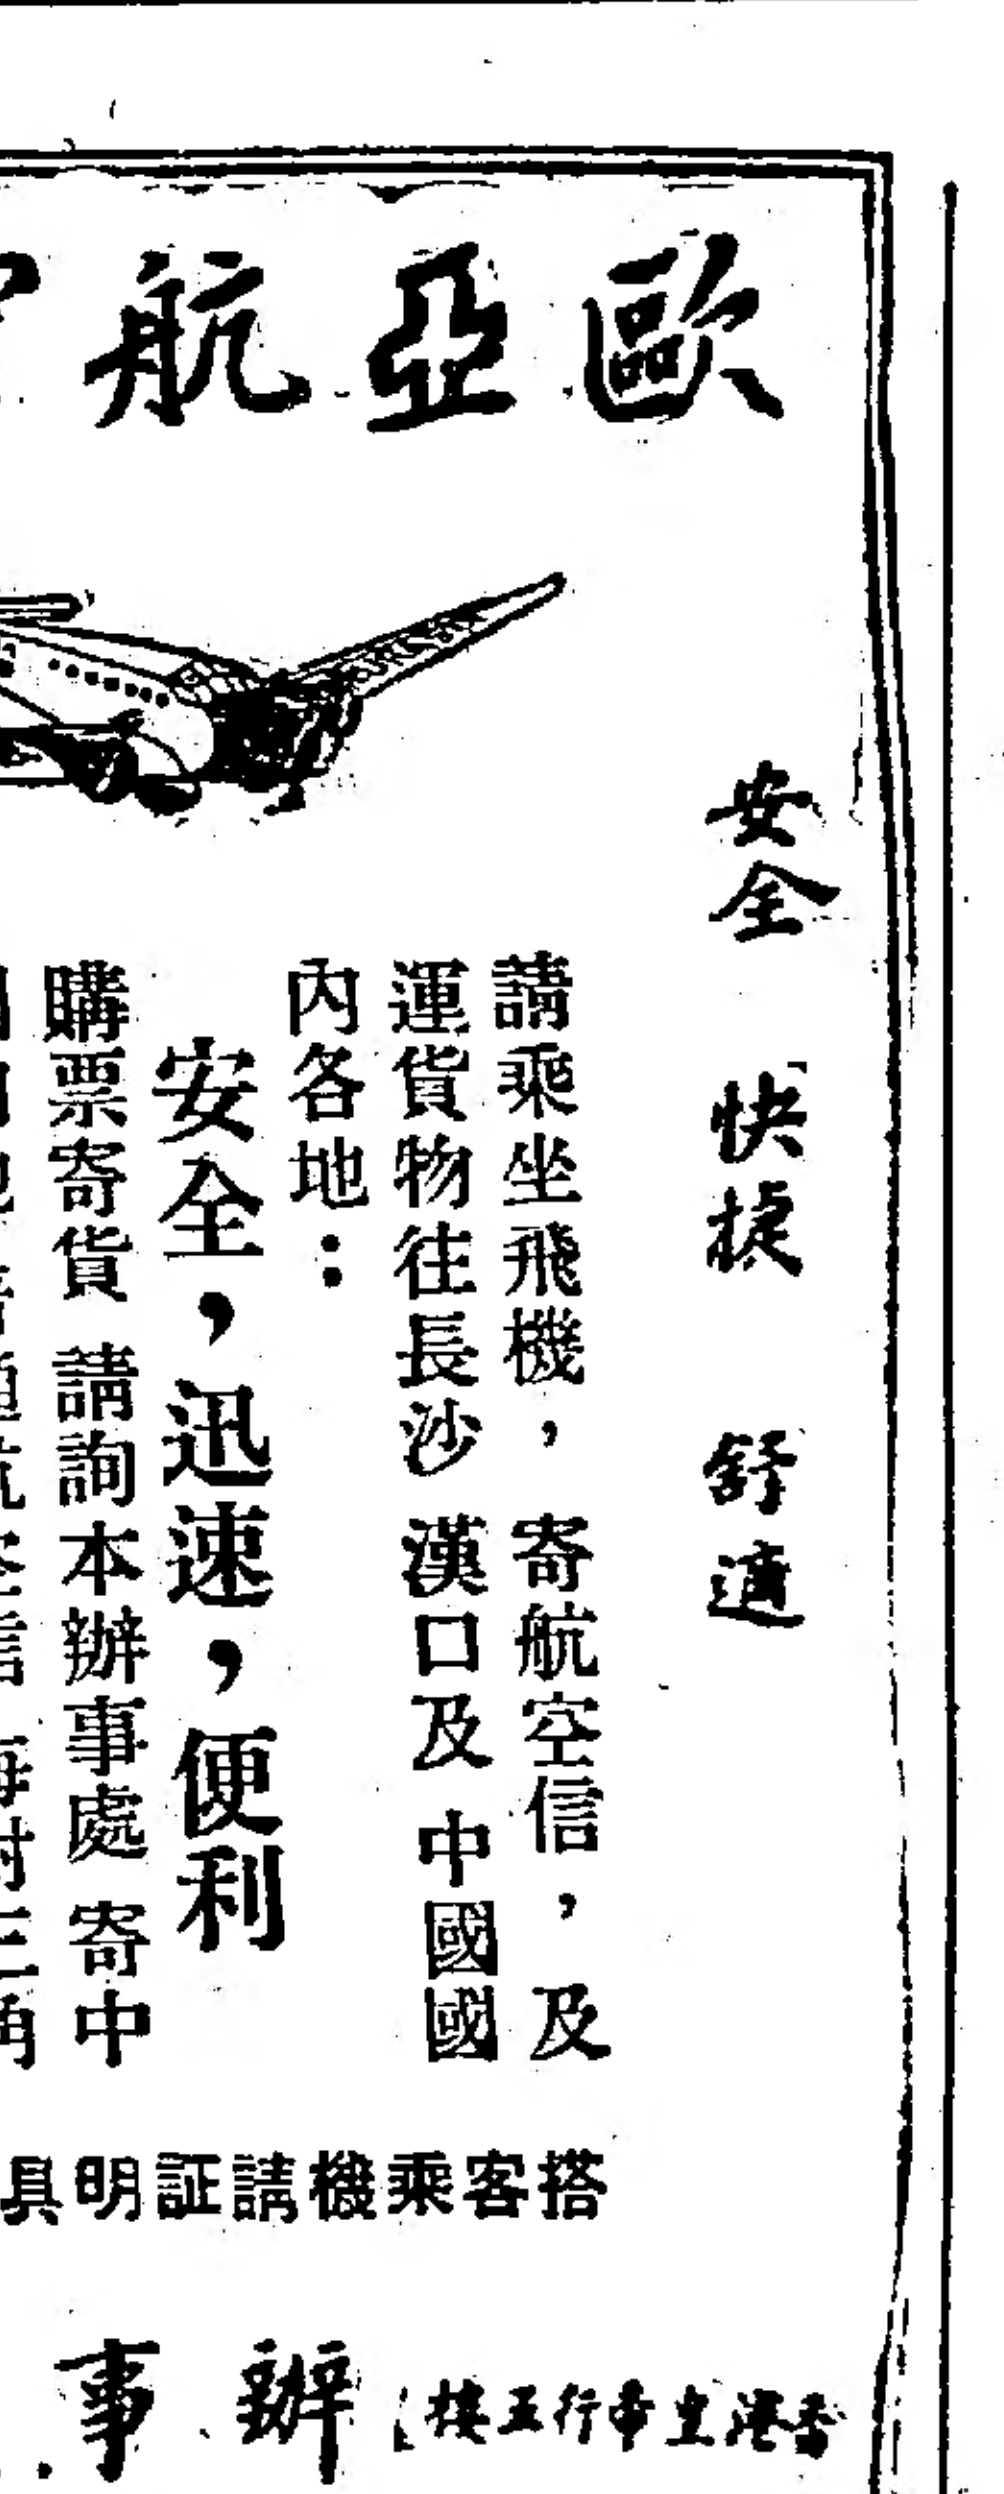 歐亞航
安全 快捷 舒適
請乘坐飛機，寄航空信，及
運貨物往長沙 漢口及 中國國
內各地：
安全，迅速，便利
購票寄貨 請詢本辦事處 寄中
搭客乘機請証明具
香港皇帝行五樓
辦事